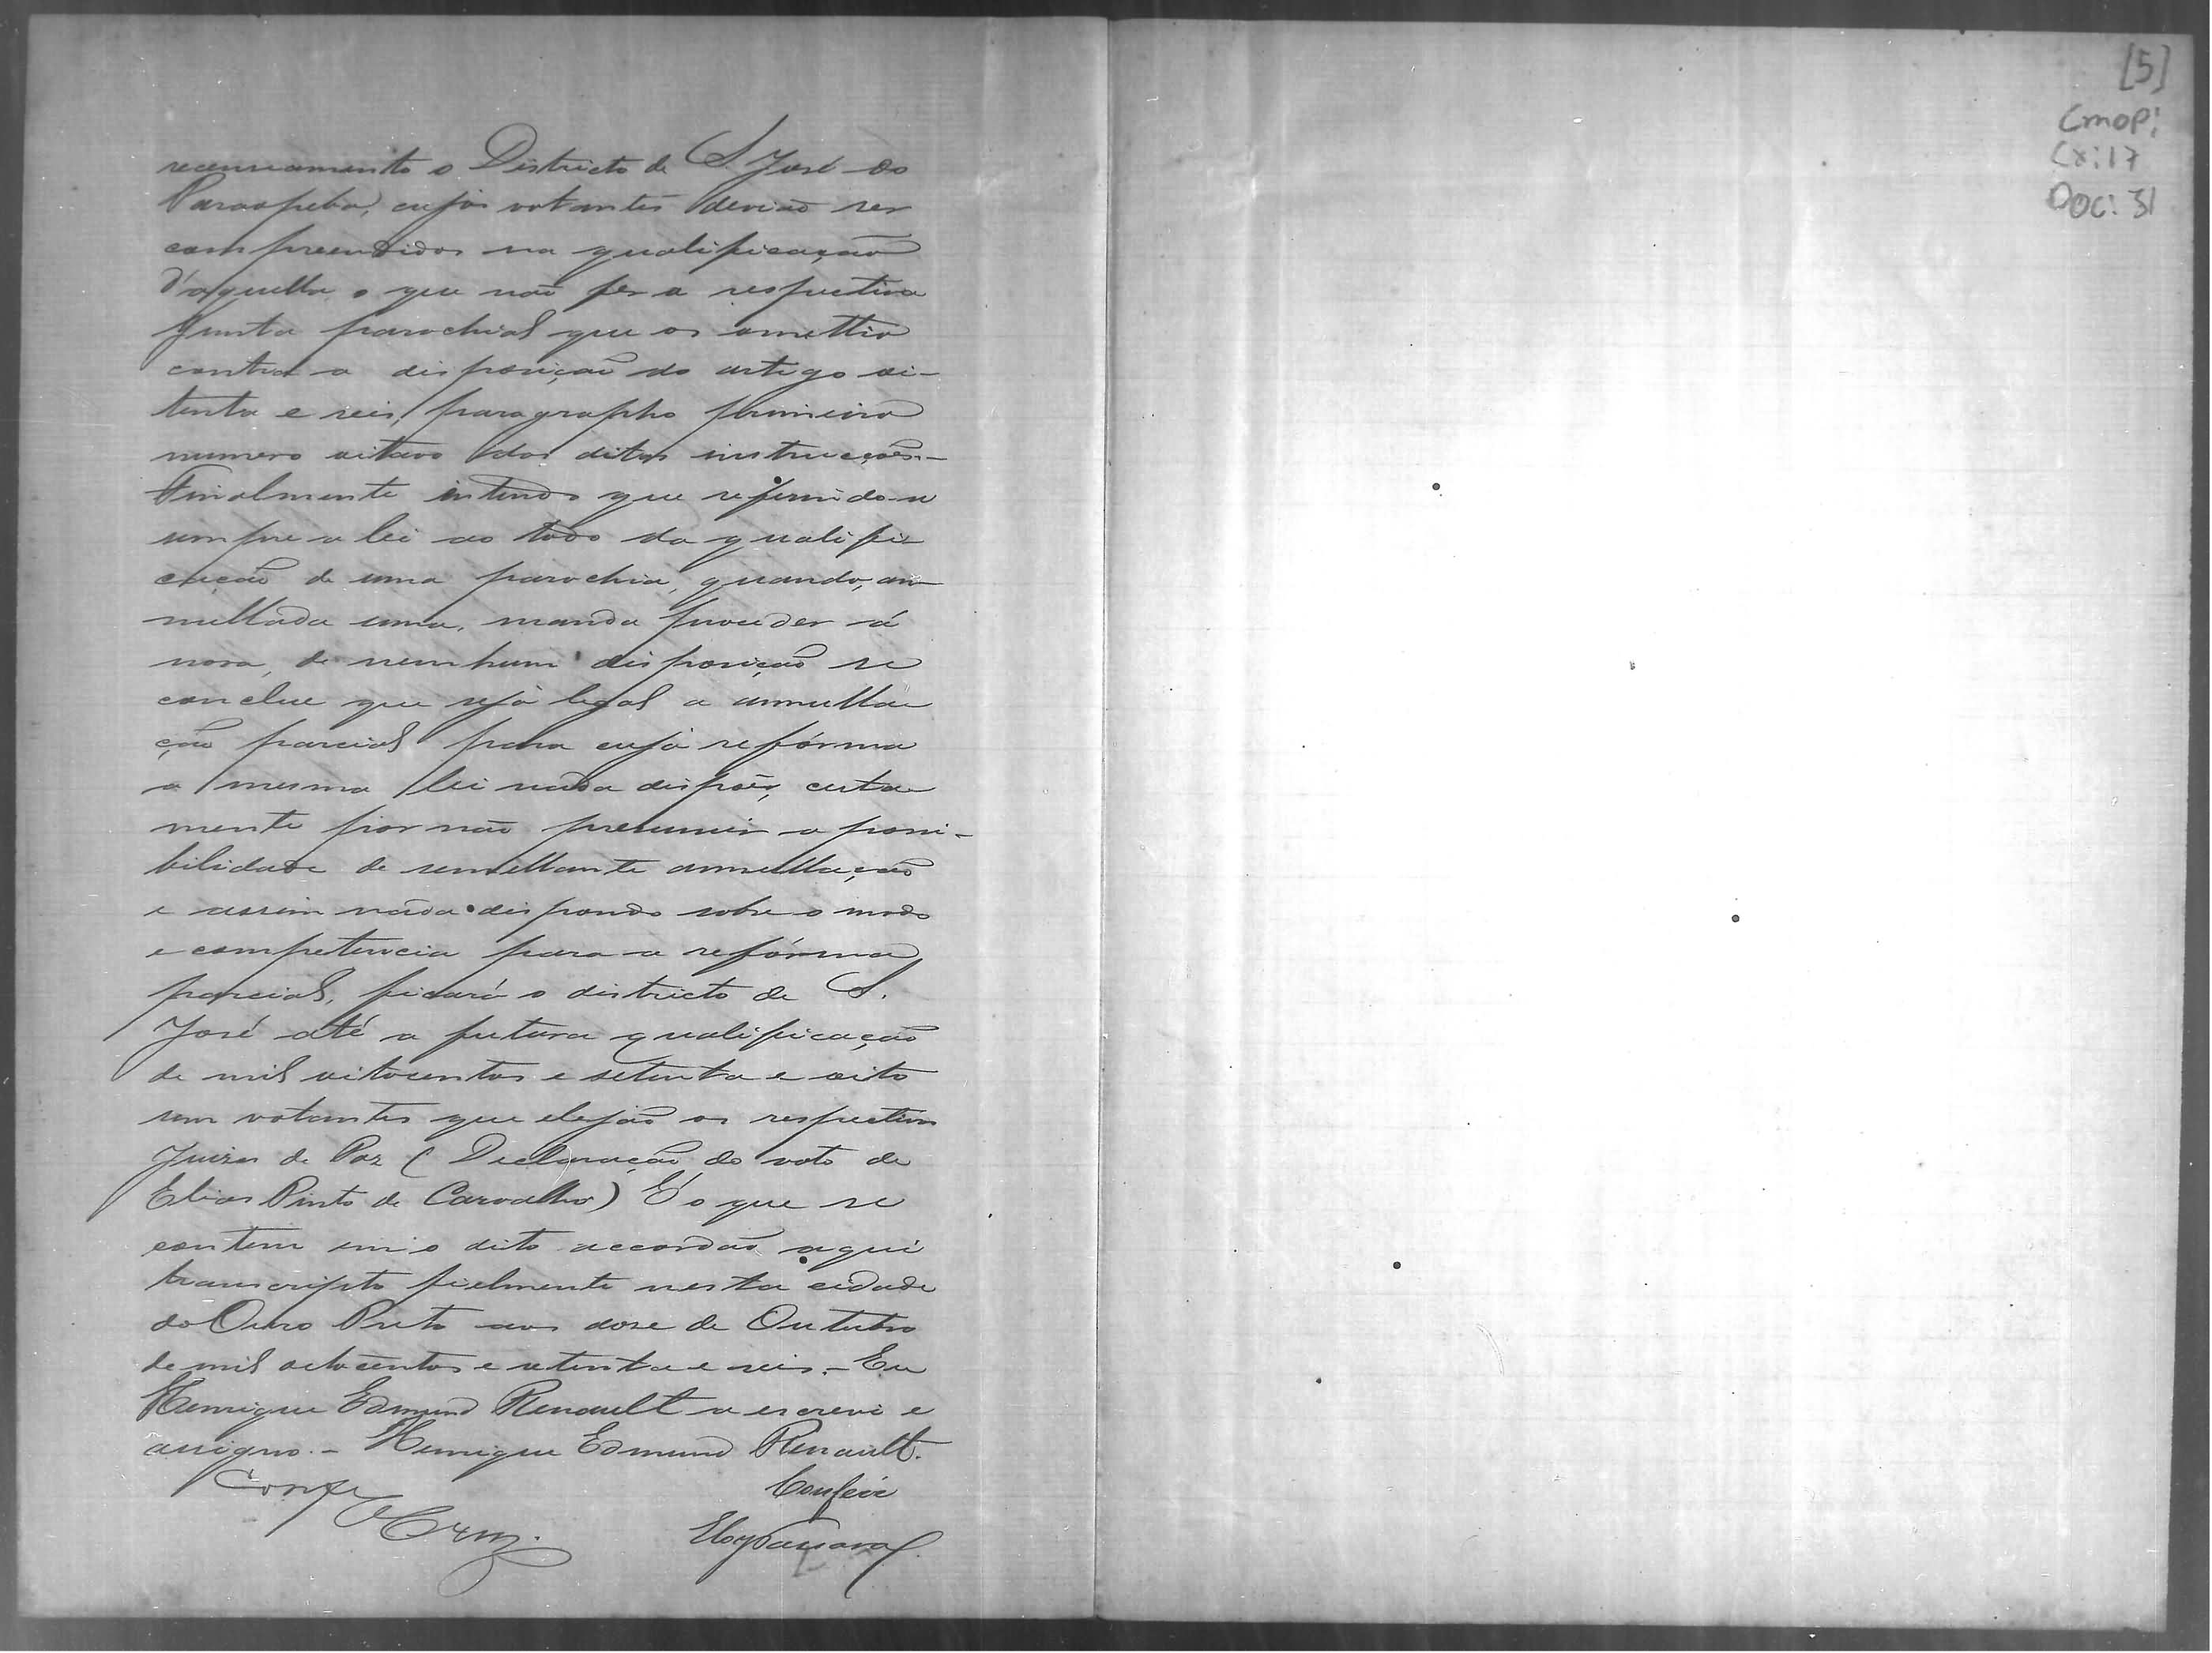 recenseamento o Districto de S. José do
Paraopeba, cujos votantes devião ser
comprendidos na qualificação
d'aquella, o que não fez a respectiva
Junta parochial que os omettio
contra a disposição do artigo oi-
tenta e seis, paragrapho primeiro
numero oitavo das ditas instrucções.-
Finalmente intendo que referindo-se
sempre a lei ao todo da qualifi-
cação de uma parochia, quando, an-
nullada uma, manda proceder á
nova, de nenhum disposição se
conclue que seja legal a annulla-
ção parcial para cuja refórma
a mesma lei nada dispõe, certa-
mente por não presumir a possi-
bilidade de semelhante annullação
e assim nada dispondo sobre o modo
e competencia para a refórma
parcial, ficará o districto de S.
José até a futura qualificação
de mil oitocentos e setenta e oito
sem votantes que elejão os respectivos
Juizes de Paz (Declaração do voto de
Elias Pinto de Carvalho) É o que se
contem em o dito accordão aqui
transcripto fielmente nesta cidade
do Ouro Preto aos doze de Outubro
de mil oitocentos e setenta e seis.- Eu
Henrique Edmund Renault a escrevi e
assigno.- Henrique Edmund Renault.
Confe Conferi
[5]
Cmop:
Cx: 17
Doc: 31